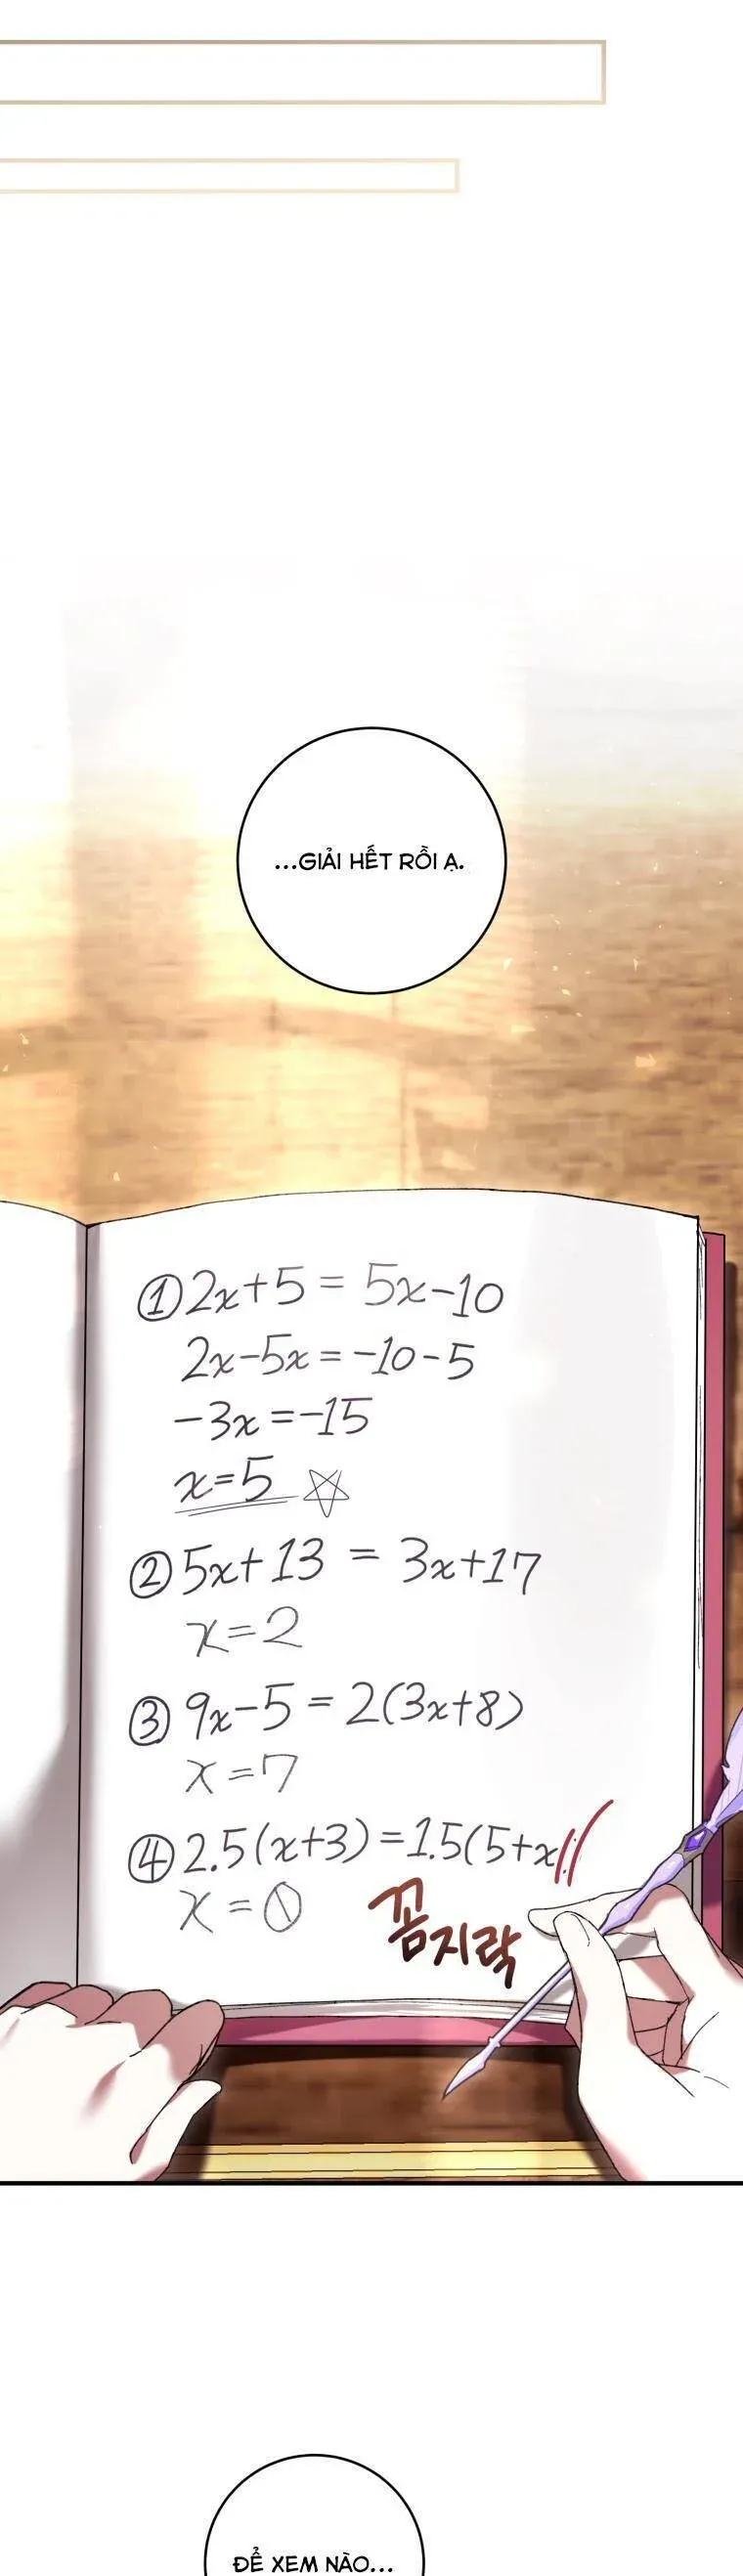 ...GIẢI HẾT RỒI Ạ.
① 2x+5 = 5x-10
2x-5x = -10-5
-3x = -15
x=5
② 5x+13 = 3x+17
x=2
③ 9x-5 = 2(3x+8)
x=7
④ 2.5(x+3) = 1.5(5+x)
x=0
꼼지락
ĐỂ XEM NÀO...